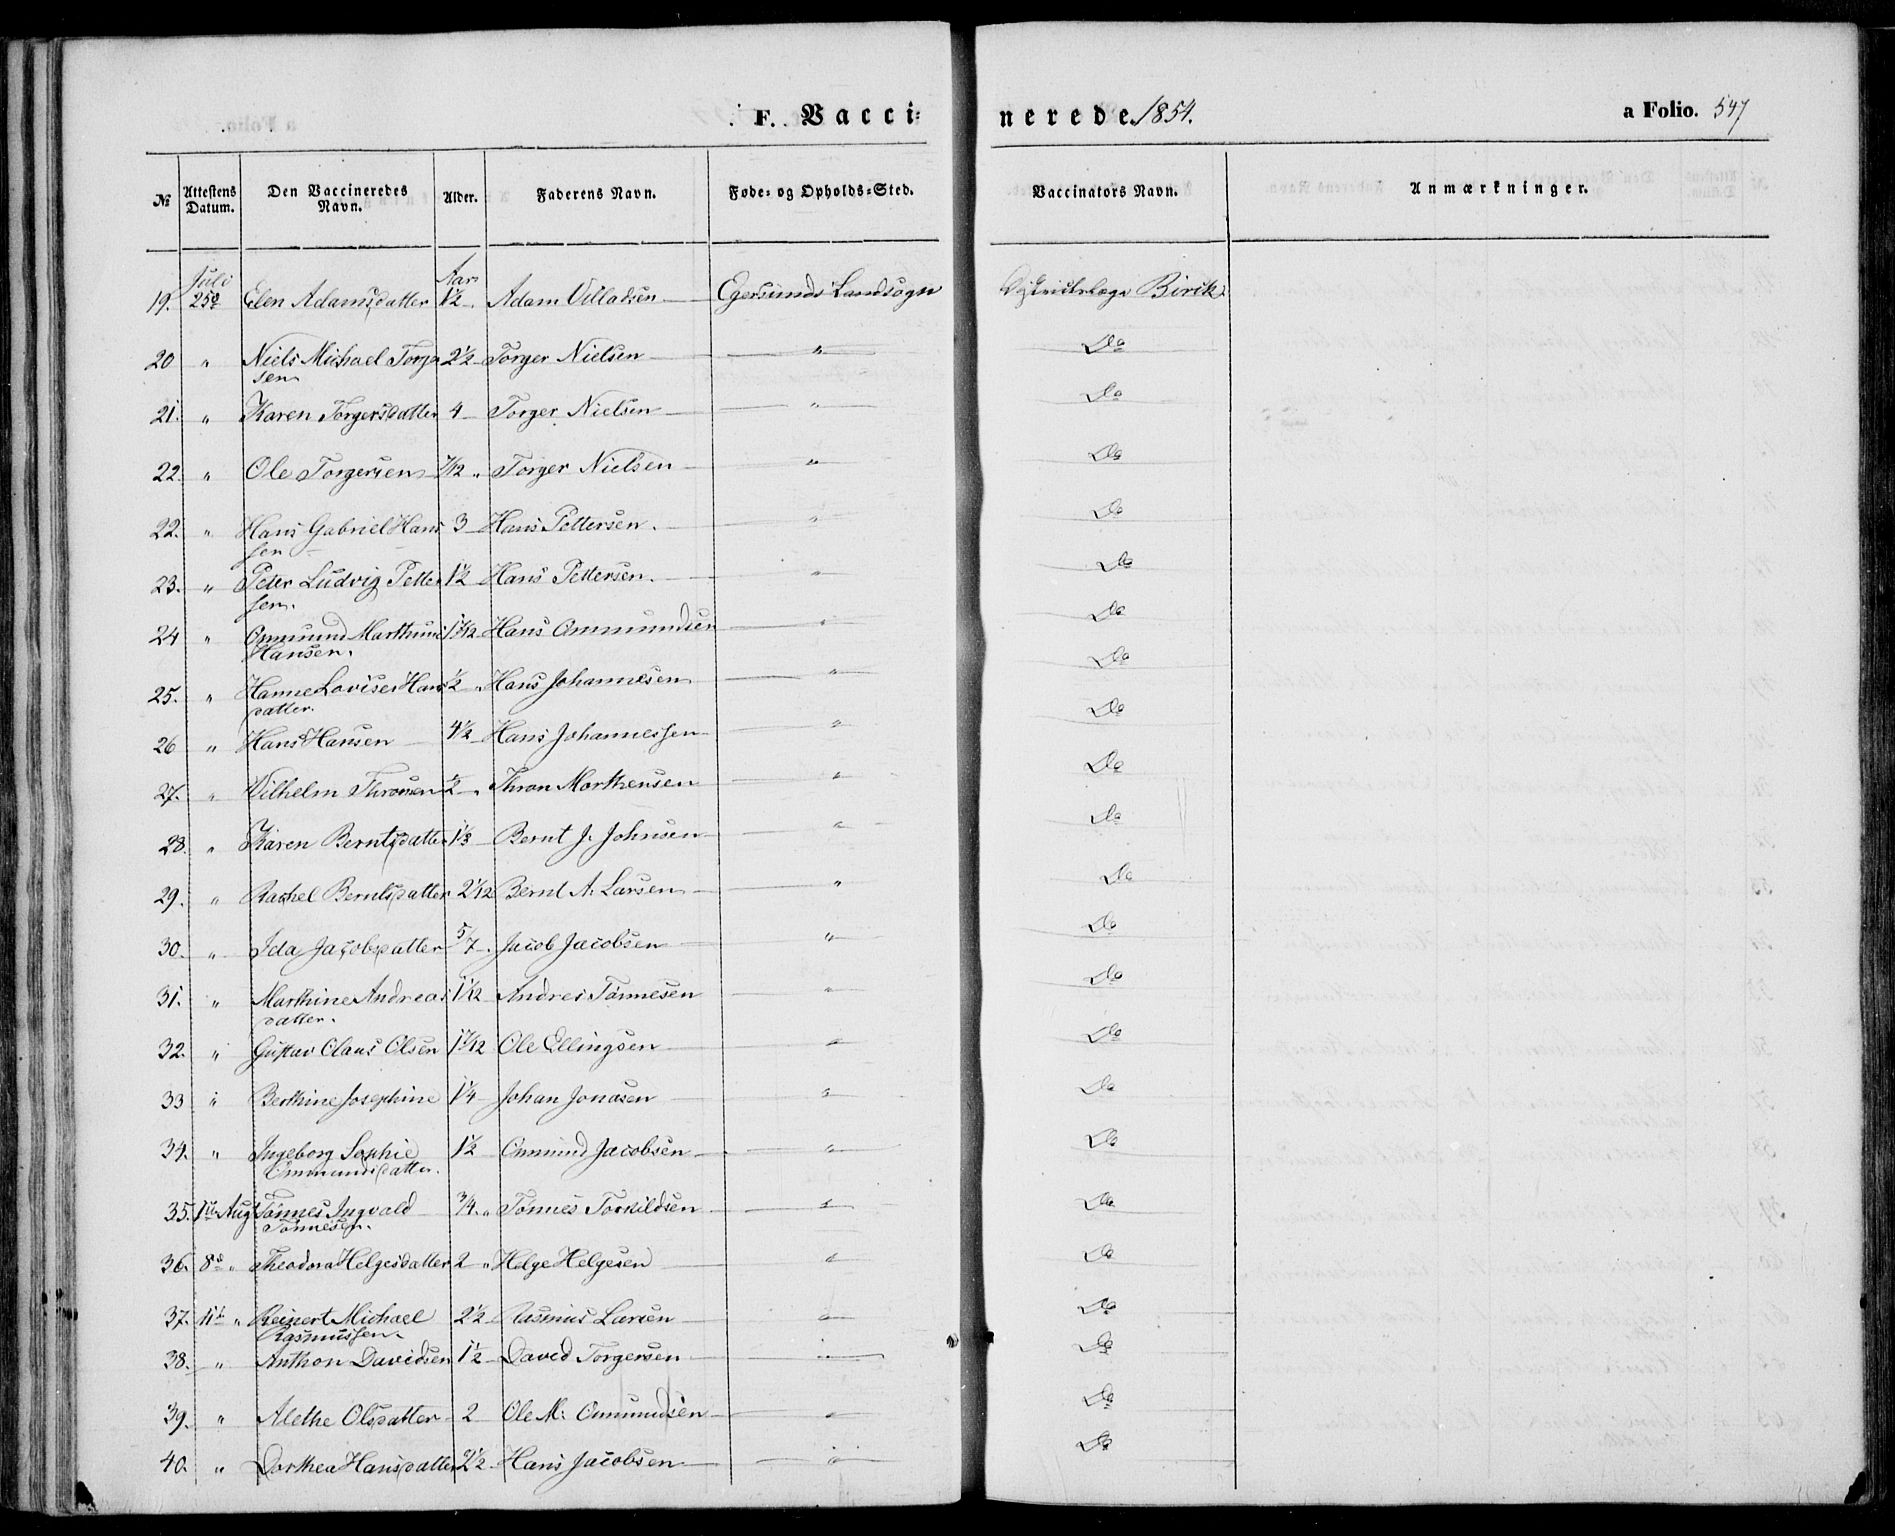 F. Vaccinerede 1854. a Folio. 547
№ Attestens Datum. Den Vaccineredes Navn. Alder. Faderens Navn. Føde- og Opholds-Sted. Vaccinators Navn. Anmærkninger.
Juli Aar
19. 25de Elen Adamsdatter 1/2 Adam Villadsen Egersunds Landsogn Districtslæge Birik
20 " Niels Michael Torger 2 1/2 Torger Nielsen " Do
sen
21. " Karen Torgersdatter 4 Torger Nielsen " Do
22. " Ole Torgersen 7/12 " Torger Nielsen " Do
22. " Hans Gabriel Hans 3 Hans Pettersen. " Do
sen
23. " Peter Ludvig Petter 1 1/2 Hans Pettersen. " Do
sen.
24 " Ommund Marthini Hans Ommundsen " Do
Hansen.
25. " Hanne Lovise Hans 1/2 " Hans Johannesen " Do
datter.
26 " Hans Hansen 4 1/2 Hans Johannessen " Do
27. " Vilhelm Thronsen 1/2 " Thron Marthensen " Do
28. " Karen Berntsdatter 1 1/3 Bernt J. Johnsen " Do
29. " Rachel Berntsdatter 2 1/12 Bernt A. Larsen " Do
30. " Ida Jacobsdatter 5/7 " Jacob Jacobsen " Do
31. " Marthine Andreas 1 1/12 Andreas Tønnesen " Do
datter.
32. " Gustav Claus Olsen 1 7/12 Ole Ellingsen " Do
33 " Berthine Josephine 1 1/4 Johan Jonasen " Do
34. " Ingeborg Sophie 1 1/2 Ommund Jacobsen " Do
Ommundsdatter.
35. 1ste Aug Tønnes Ingvald 3/4 " Tønnes Torkildsen " Do
Tønnesen.
36. 8de " Theodora Helgesdatter 2 " Helge Helgesen " Do
37. 11te " Reinert Michael 2 1/2 Rasmus Larsen " Do
Rasmussen.
38. " Anthon Davidsen 1 1/2 David Torgersen " Do
39. " Alethe Olsdatter 2 Ole M. Ommundsen " Do
40. " Dorthea Hansdatter 2 1/2 Hans Jacobsen " Do